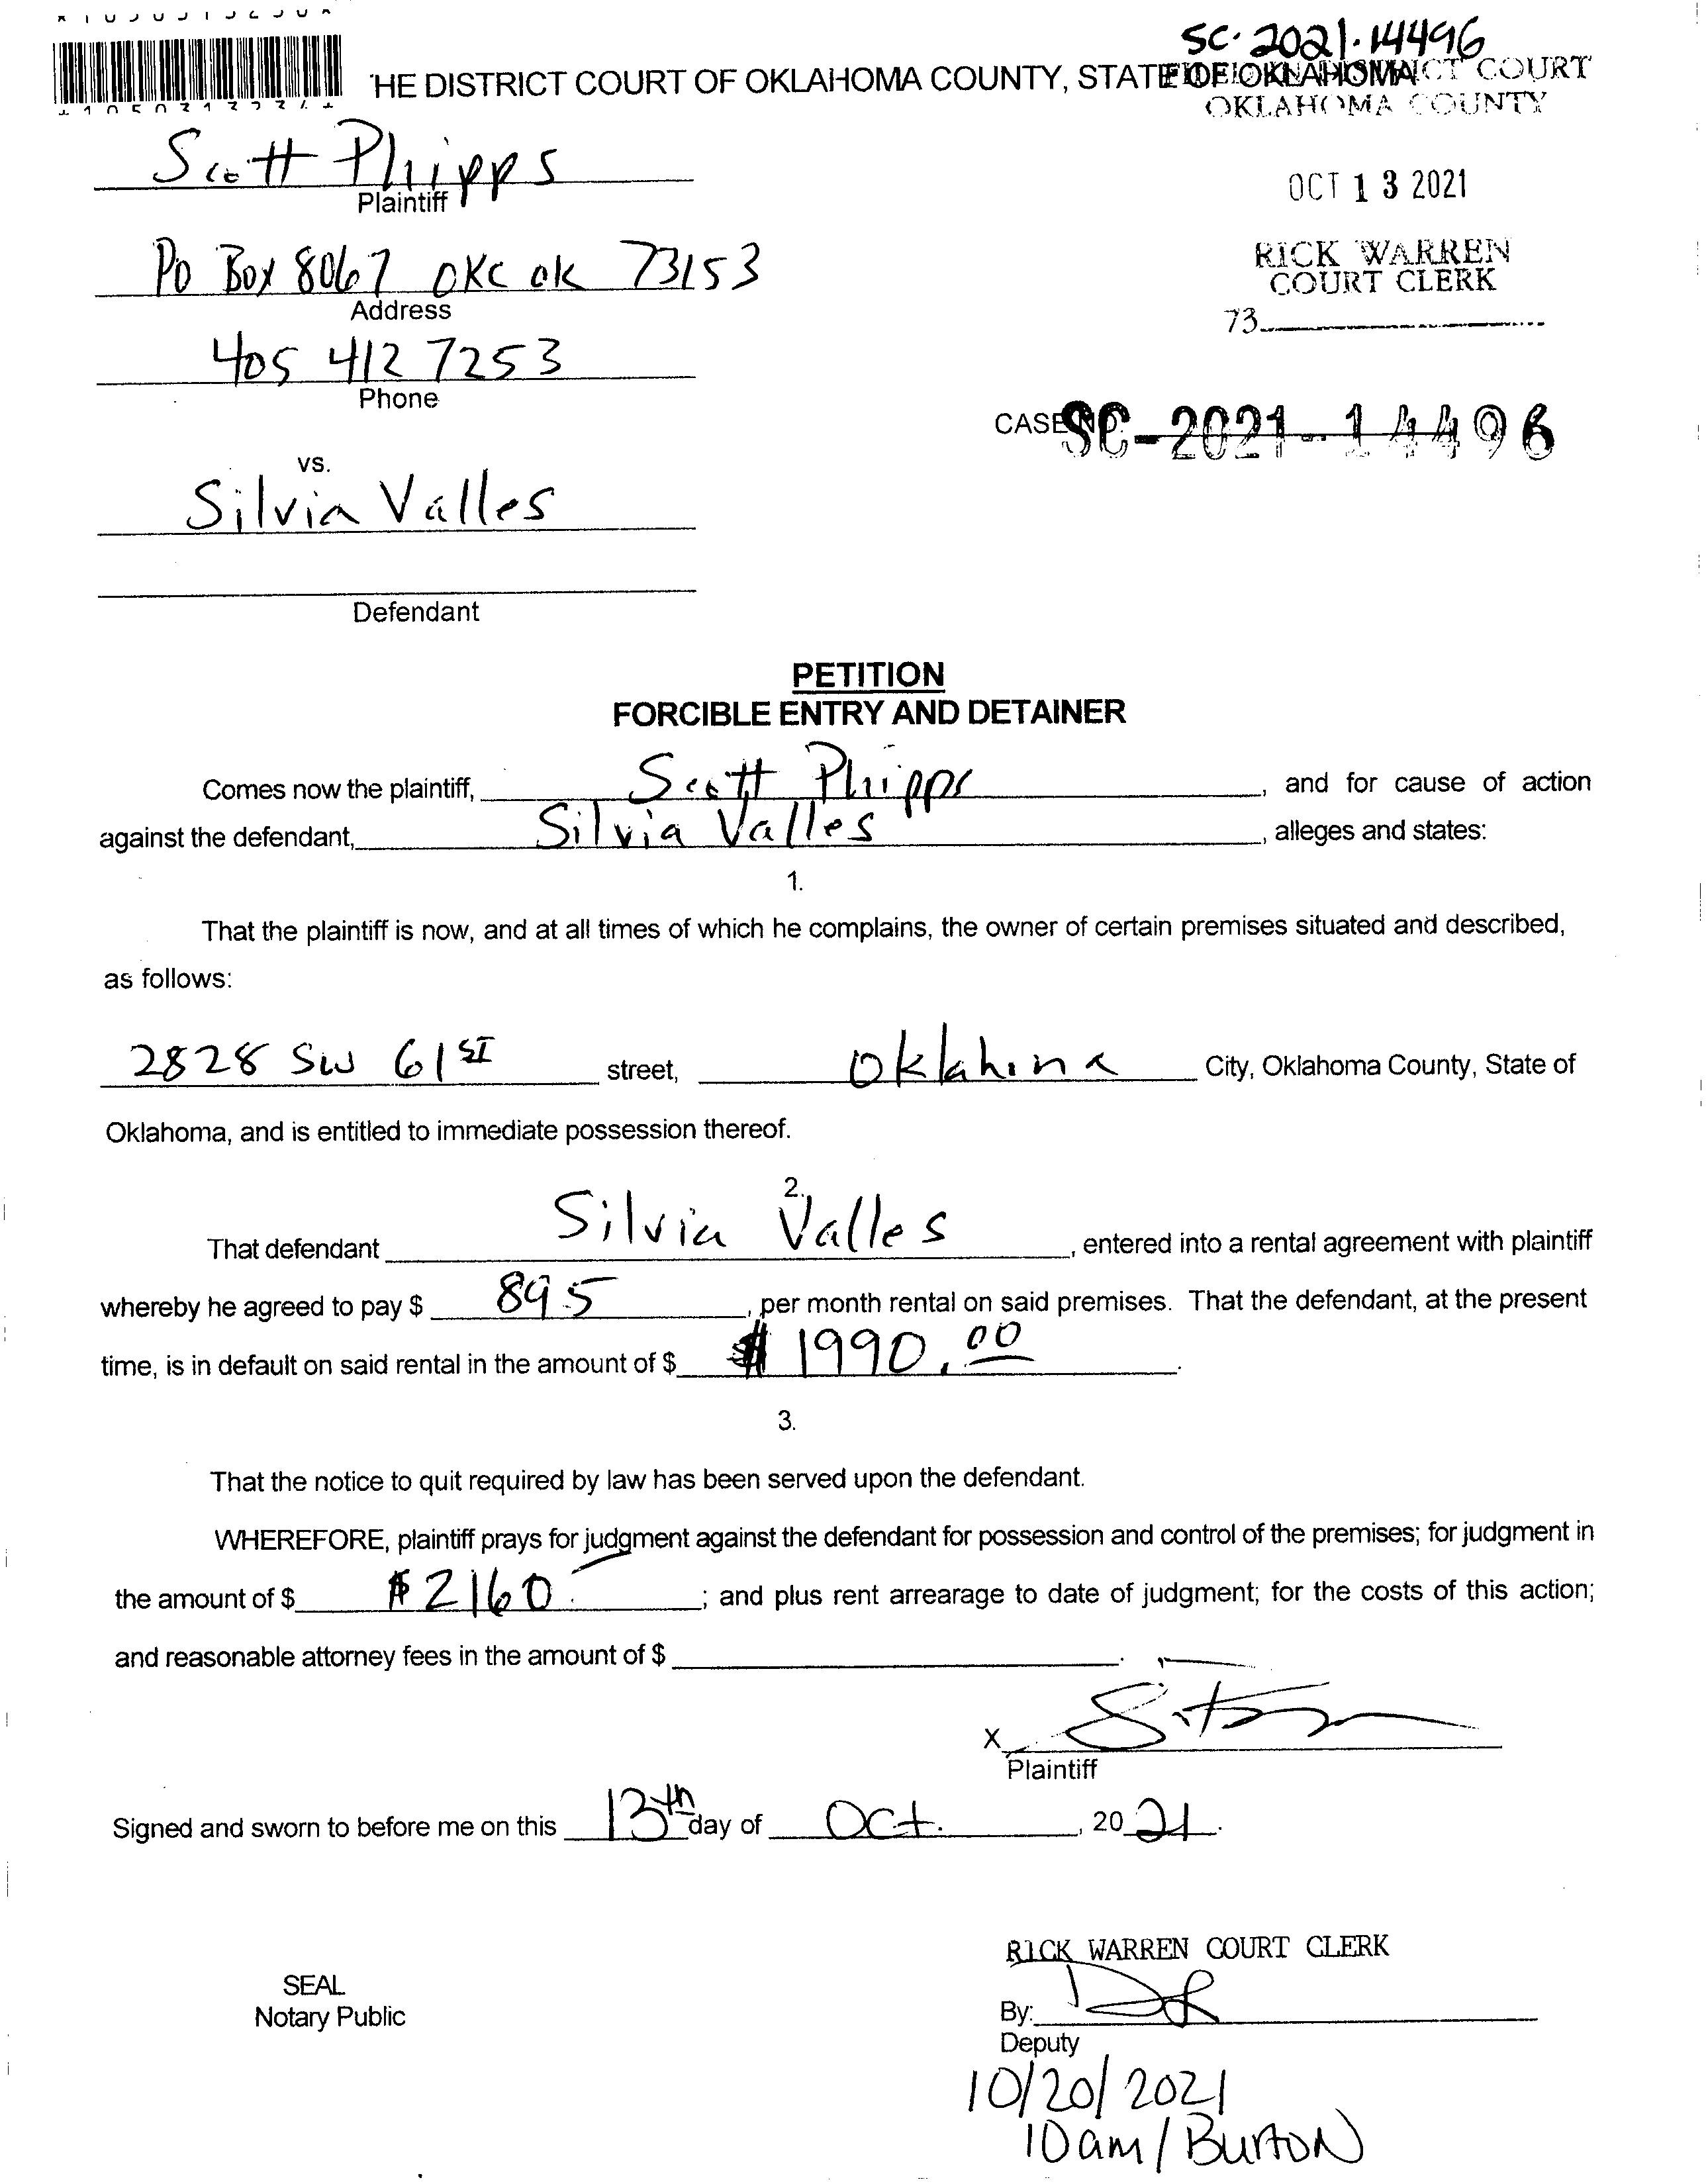 SC-2021-14496
HE DISTRICT COURT OF OKLAHOMA COUNTY, STATE OF OKLAHOMA
COURT
OKLAHOMA COUNTY
Scott Phipps
Plaintiff
OCT 13 2021
PO Box 8067 OKC OK 73153
Address
RICK WARREN
COURT CLERK
73
405 412 7253
Phone
CASE NO. SC-2021-14496
vs.
Silvia Valles
Defendant
PETITION
FORCIBLE ENTRY AND DETAINER
Comes now the plaintiff, Scott Phipps, and for cause of action
against the defendant, Silvia Valles, alleges and states:
1.
That the plaintiff is now, and at all times of which he complains, the owner of certain premises situated and described,
as follows:
2828 SW 61st street, Oklahoma City, Oklahoma County, State of
Oklahoma, and is entitled to immediate possession thereof.
2.
That defendant Silvia Valles, entered into a rental agreement with plaintiff
whereby he agreed to pay $ 895, per month rental on said premises. That the defendant, at the present
time, is in default on said rental in the amount of $ $1990.00.
3.
That the notice to quit required by law has been served upon the defendant.
WHEREFORE, plaintiff prays for judgment against the defendant for possession and control of the premises; for judgment in
the amount of $ $2160; and plus rent arrearage to date of judgment; for the costs of this action;
and reasonable attorney fees in the amount of $ .
X
Plaintiff
Signed and sworn to before me on this 13th day of Oct., 2021.
RICK WARREN COURT CLERK
SEAL
Notary Public
By:
Deputy
10/20/2021
10am/Burton